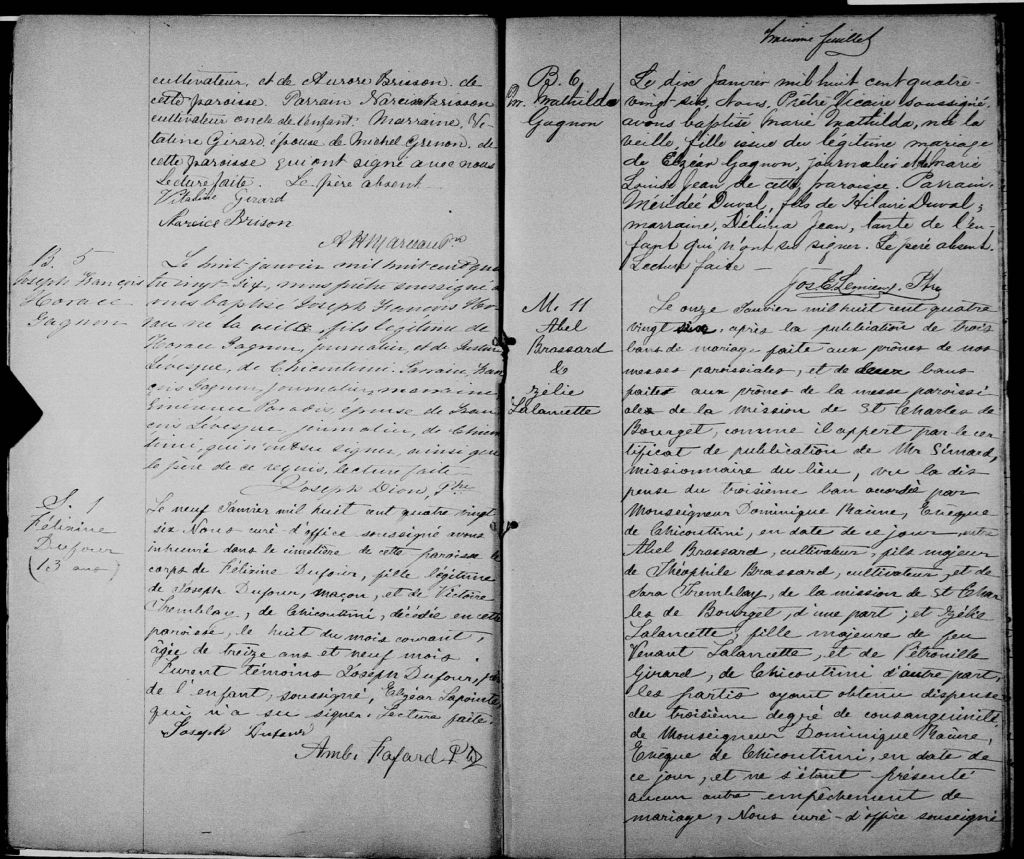 cultivateur, et de Aurore Brisson de
cette paroisse. Parrain Narcisse Brisson
cultivateur oncle de l'enfant; Marraine, Vi-
taline Girard, épouse de Michel Grenon, de
cette paroisse qui ont signé avec nous
Lecture faite. Le père absent
Vitaline Girard
Narcice Brison
B. 5
Joseph François
Horace
Gagnon
Le huit janvier mil huit cent qua
tre vingt six, nous prêtre soussigné a
vons baptisé Joseph François Ho-
race né la veille, fils légitime de
Horace Gagnon, journalier, et de Justine
Lévesque, de Chicoutimi. Parrain, Fran
çois Gagnon, journalier, marraine
Eminence Paradis, épouse de Fran
çois Lévesque, journalier, de Chicou
timi, qui n'ont su signer, ainsi que
le père de ce requis, lecture faite
Joseph Dion, Ptre
S. 1
Félixine
Dufour
(13 ans)
Le neuf Janvier mil huit cent quatre vingt
six Nous curé d'office soussigné avons
inhumé dans le cimetière de cette paroisse le
corps de Félixine Dufour, fille légitime
de Joseph Dufour, maçon, et de Victoire
Tremblay, de Chicoutimi, décédée en cette
paroisse, le huit du mois courant,
âgée de treize ans et neuf mois.
Furent témoins Joseph Dufour, père
de l'enfant, soussigné, Elzéar Lapointe
qui n'a su signer. Lecture faite.
Joseph Dufour
Ambr. Fafard Ptre
feuillet
B. 6
M. Mathilda
Gagnon
Le dix Janvier mil huit cent quatre-
vingt-six, Nous, Prêtre Vicaire soussigné,
avons baptisé Marie Mathilda, née la
veille, fille issue du légitime mariage
de Elzéar Gagnon, journalier et de Marie
Louise Jean de cette paroisse. Parrain,
Méridée Duval, fils de Hilaire Duval;
marraine, Délima Jean, tante de l'en-
fant qui n'ont su signer. Le père absent.
Lecture faite —
Jos E Lemieux, Ptre
M. 11
Abel
Brassard
&
Zélie
Lalancette
Le onze Janvier mil huit cent quatre
vingt six, après la publication de trois
bans de mariage faite aux prônes de nos
messes paroissiales, et de deux bans
faites aux prônes de la messe paroissi
ales de la mission de St Charles de
Bourget, comme il appert par le cer
tificat de publication de Mr Simard,
missionnaire du lieu, vu la dis
pense du troisième ban accordée par
Monseigneur Dominique Racine, Evêque
de Chicoutimi, en date de ce jour, entre
Abel Brassard, cultivateur, fils majeur
de Théophile Brassard, cultivateur, et de
Sara Tremblay, de la mission de St Char
les de Bourget, d'une part; et Zélie
Lalancette, fille majeure de feu
Venant Lalancette, et de Pétronille
Girard, de Chicoutimi d'autre part,
les partis ayant obtenu dispense
du troisième degré de consanguinité
de Monseigneur Dominique Racine,
Evêque de Chicoutimi, en date de
ce jour, et ne s'étant présenté
aucun autre empêchement de
mariage, Nous curé-d'office soussigné